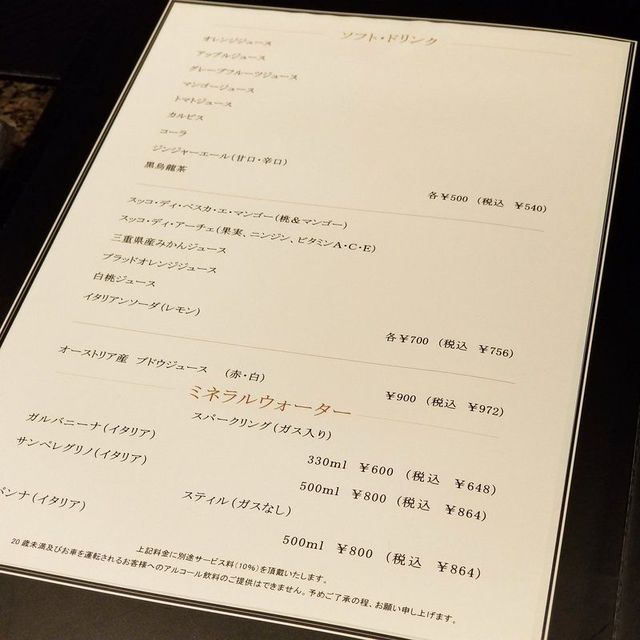 ソフト・ドリンク
オレンジジュース
アップルジュース
グレープフルーツジュース
マンゴージュース
トマトジュース
カルピス
コーラ
ジンジャーエール(甘口・辛口)
黒烏龍茶
各¥500 (税込 ¥540)
スッコ・ディ・ペスカ・エ・マンゴー(桃&マンゴー)
スッコ・ディ・アーチェ(果実、ニンジン、ビタミンA・C・E)
三重県産みかんジュース
ブラッドオレンジジュース
白桃ジュース
イタリアンソーダ(レモン)
各¥700 (税込 ¥756)
オーストリア産 ブドウジュース (赤・白)
¥900 (税込 ¥972)
ミネラルウォーター
スパークリング(ガス入り)
ガルバニーナ(イタリア)
330ml ¥600 (税込 ¥648)
サンペレグリノ(イタリア)
500ml ¥800 (税込 ¥864)
スティル(ガスなし)
パンナ(イタリア)
500ml ¥800 (税込 ¥864)
上記料金に別途サービス料(10%)を頂戴いたします。
20歳未満及びお車を運転されるお客様へのアルコール飲料のご提供はできません。予めご了承の程、お願い申し上げます。